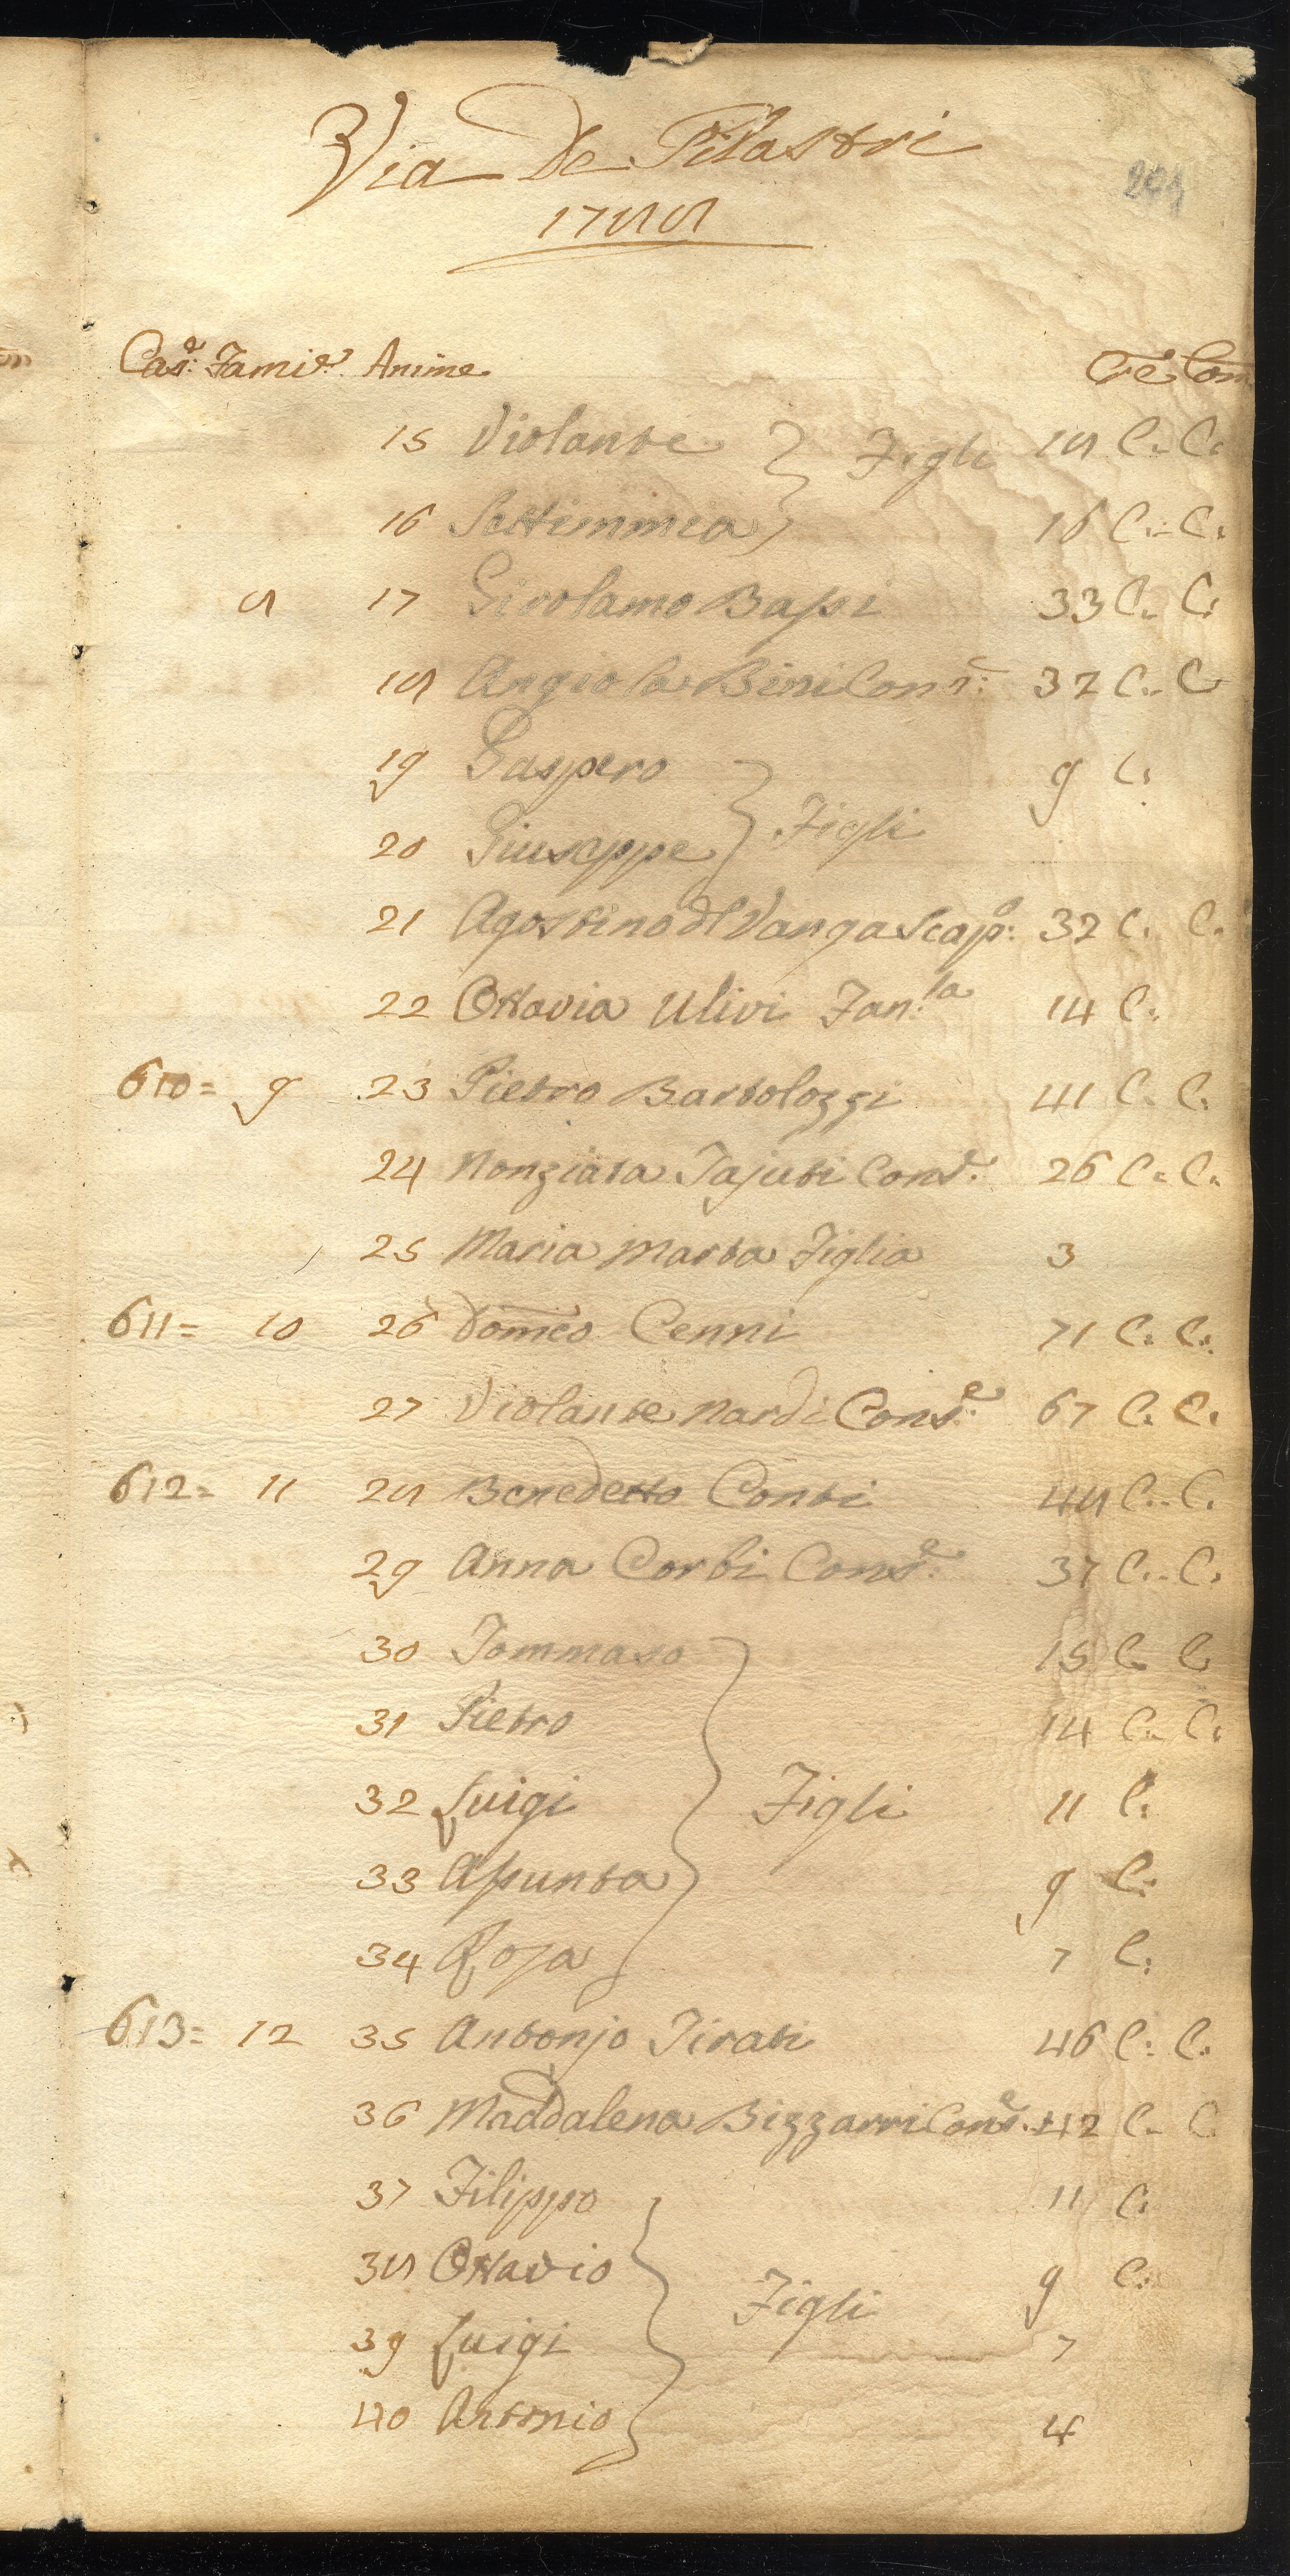 Via De Pilastri
1788
Cas:e Fami:e Anime Cre Com
15 Violante } Figli 18 C. C.
16 Settimmia } 16 C. C.
8 17 Girolamo Bassi 33 C. C.
18 Angiola Bini Cons:e 32 C. C
19 Gaspero 9 C.
20 Giuseppe } Figli
21 Agostino dl Vanga Scap:o 32 C. C.
22 Ottavia Ulivi Fan:la 14 C.
610= 9 23 Pietro Bartolozzi 41 C. C.
24 Nonziata Tajuti Cons:e 26 C. C.
25 Maria Marta Figlia 3
611= 10 26 Domco Cenni 71 C. C.
27 Violante Nardi Cons:e 67 C. C.
612= 11 28 Benedetto Conti 48 C. C.
29 Anna Corbi Cons:e 37 C. C.
30 Tommaso 15 C. C
31 Pietro 14 C. C.
32 Luigi } Figli 11 C.
33 Assunta 9 C.
34 Rosa 7 C.
613= 12 35 Antonjo Tirati 46 C. C.
36 Maddalena Bizzarri Cons:e 42 C. C
37 Filippo 11 C.
38 Ottavio } Figli 9 C.
39 Luigi 7
40 Antonio 4